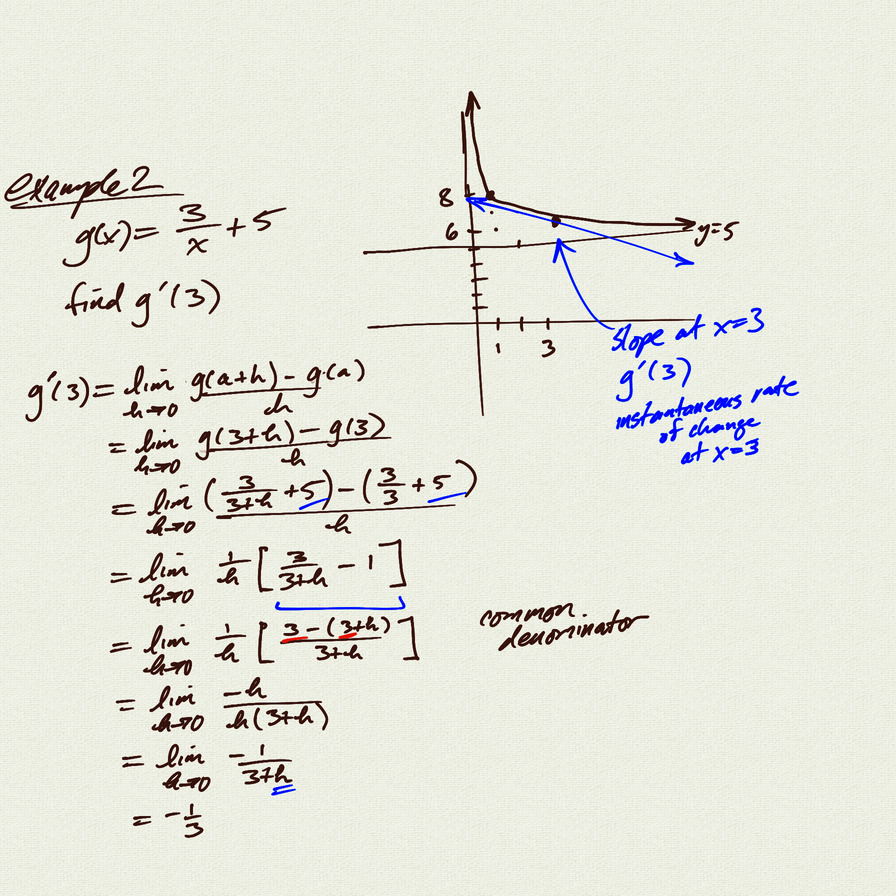 example 2
g(x) = 3/x + 5
find g'(3)
8
6
y=5
1 3
slope at x=3
g'(3)
instantaneous rate
of change
at x=3
g'(3) = lim h→0 (g(a+h) - g(a))/h
= lim h→0 (g(3+h) - g(3))/h
= lim h→0 ((3/(3+h) + 5) - (3/3 + 5))/h
= lim h→0 1/h [3/(3+h) - 1]
= lim h→0 1/h [(3-(3+h))/(3+h)]
common
denominator
= lim h→0 -h/(h(3+h))
= lim h→0 -1/(3+h)
= -1/3